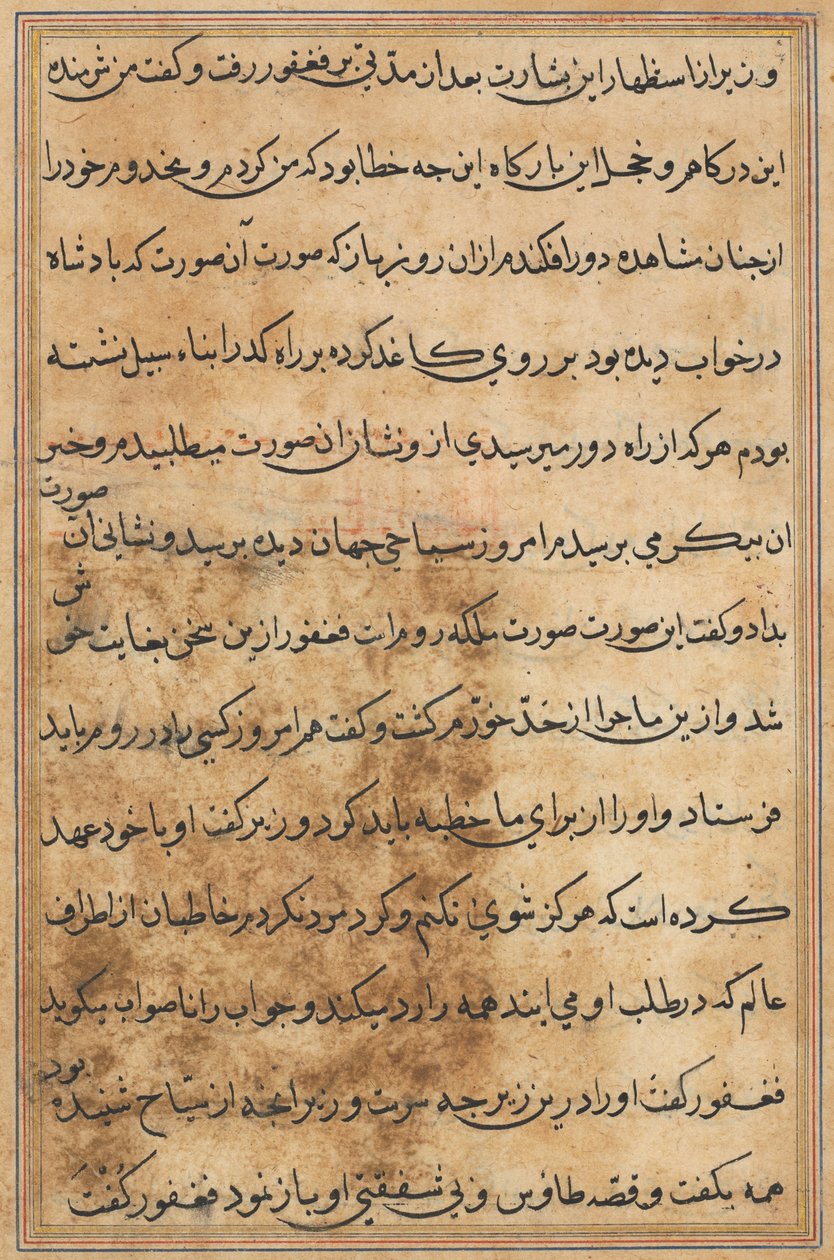 وزیر از استظهار این بشارت بعد ان مدّتی بر فغفور رفت و کفت من شرمنده
این درکاهم و خجل این بارکاه این جه خطا بود که من کردم و مخدوم خود را
از جنان مشاهده دور افکندم از ان روز باز که صورت آن صورت که بادشاه
در خواب دیده بود بر روي کاغد کرده بر راه کدر ابناء سبیل نشسته
بودم هر که از راه دور میرسیدي از و نشان ان صورت میطلبیدم و خبر
ان بیکر می برسیدم امروز سیاحی جهان دیده برسید و نشانی آن صورت
بداد و کفت این صورت صورت ملکه روم است فغفور ازین سخن بغایت خوش
شد و ازین ماجرا از حدّ خوّرم کشت و کفت هم امروز کسی را در روم باید
فرستاد و او را از براي ما خطبه باید کرد وزیر کفت او با خود عهد
کرده است که هرکز شوي نکنم و کرد مرد نکردم خاطبان از اطراف
عالم که در طلب او می ایند همه را رد میکند و جواب را ناصواب میکوید
فغفور کفت او را درین زیر جه سرست وزیر انجه از سیّاح شنیده بود
همه بکفت و قصّه طاؤس و بی شفقتی او باز نمود فغفور کُفْتَ